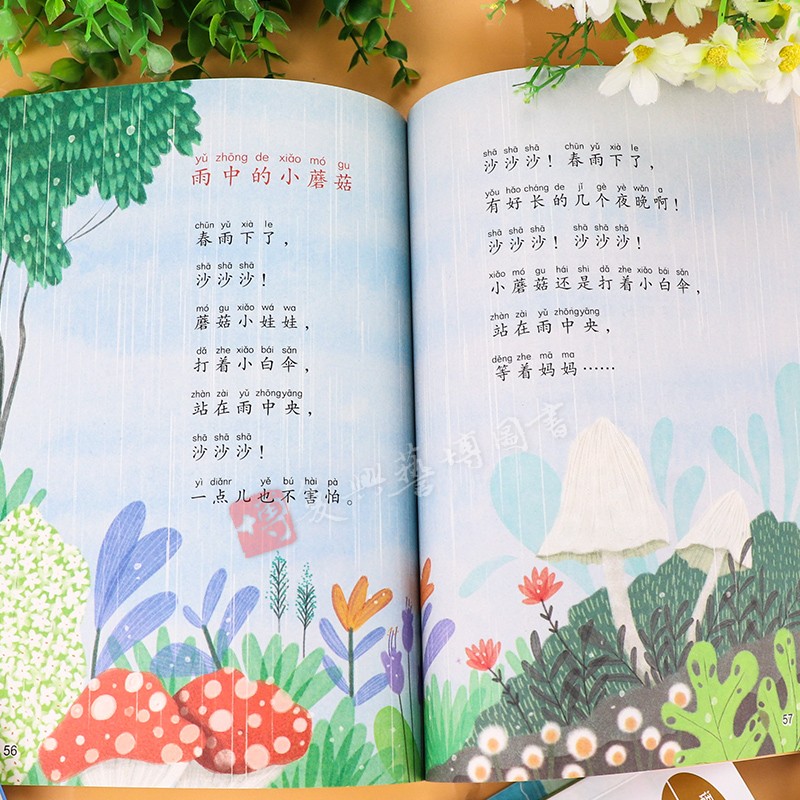 yǔ zhōng de xiǎo mó gu
雨中的小蘑菇
chūn yǔ xià le
春雨下了，
shā shā shā
沙沙沙！
mó gu xiǎo wá wa
蘑菇小娃娃，
dǎ zhe xiǎo bái sǎn
打着小白伞，
zhàn zài yǔ zhōngyāng
站在雨中央，
shā shā shā
沙沙沙！
yì diǎnr yě bú hài pà
一点儿也不害怕。
56
shā shā shā chūn yǔ xià le
沙沙沙！春雨下了，
yǒu hǎo cháng de jǐ gè yè wǎn a
有好长的几个夜晚啊！
shā shā shā shā shā shā
沙沙沙！沙沙沙！
xiǎo mó gu hái shi dǎ zhe xiǎo bái sǎn
小蘑菇还是打着小白伞，
zhàn zài yǔ zhōngyāng
站在雨中央，
děng zhe mā ma
等着妈妈……
57
博图书